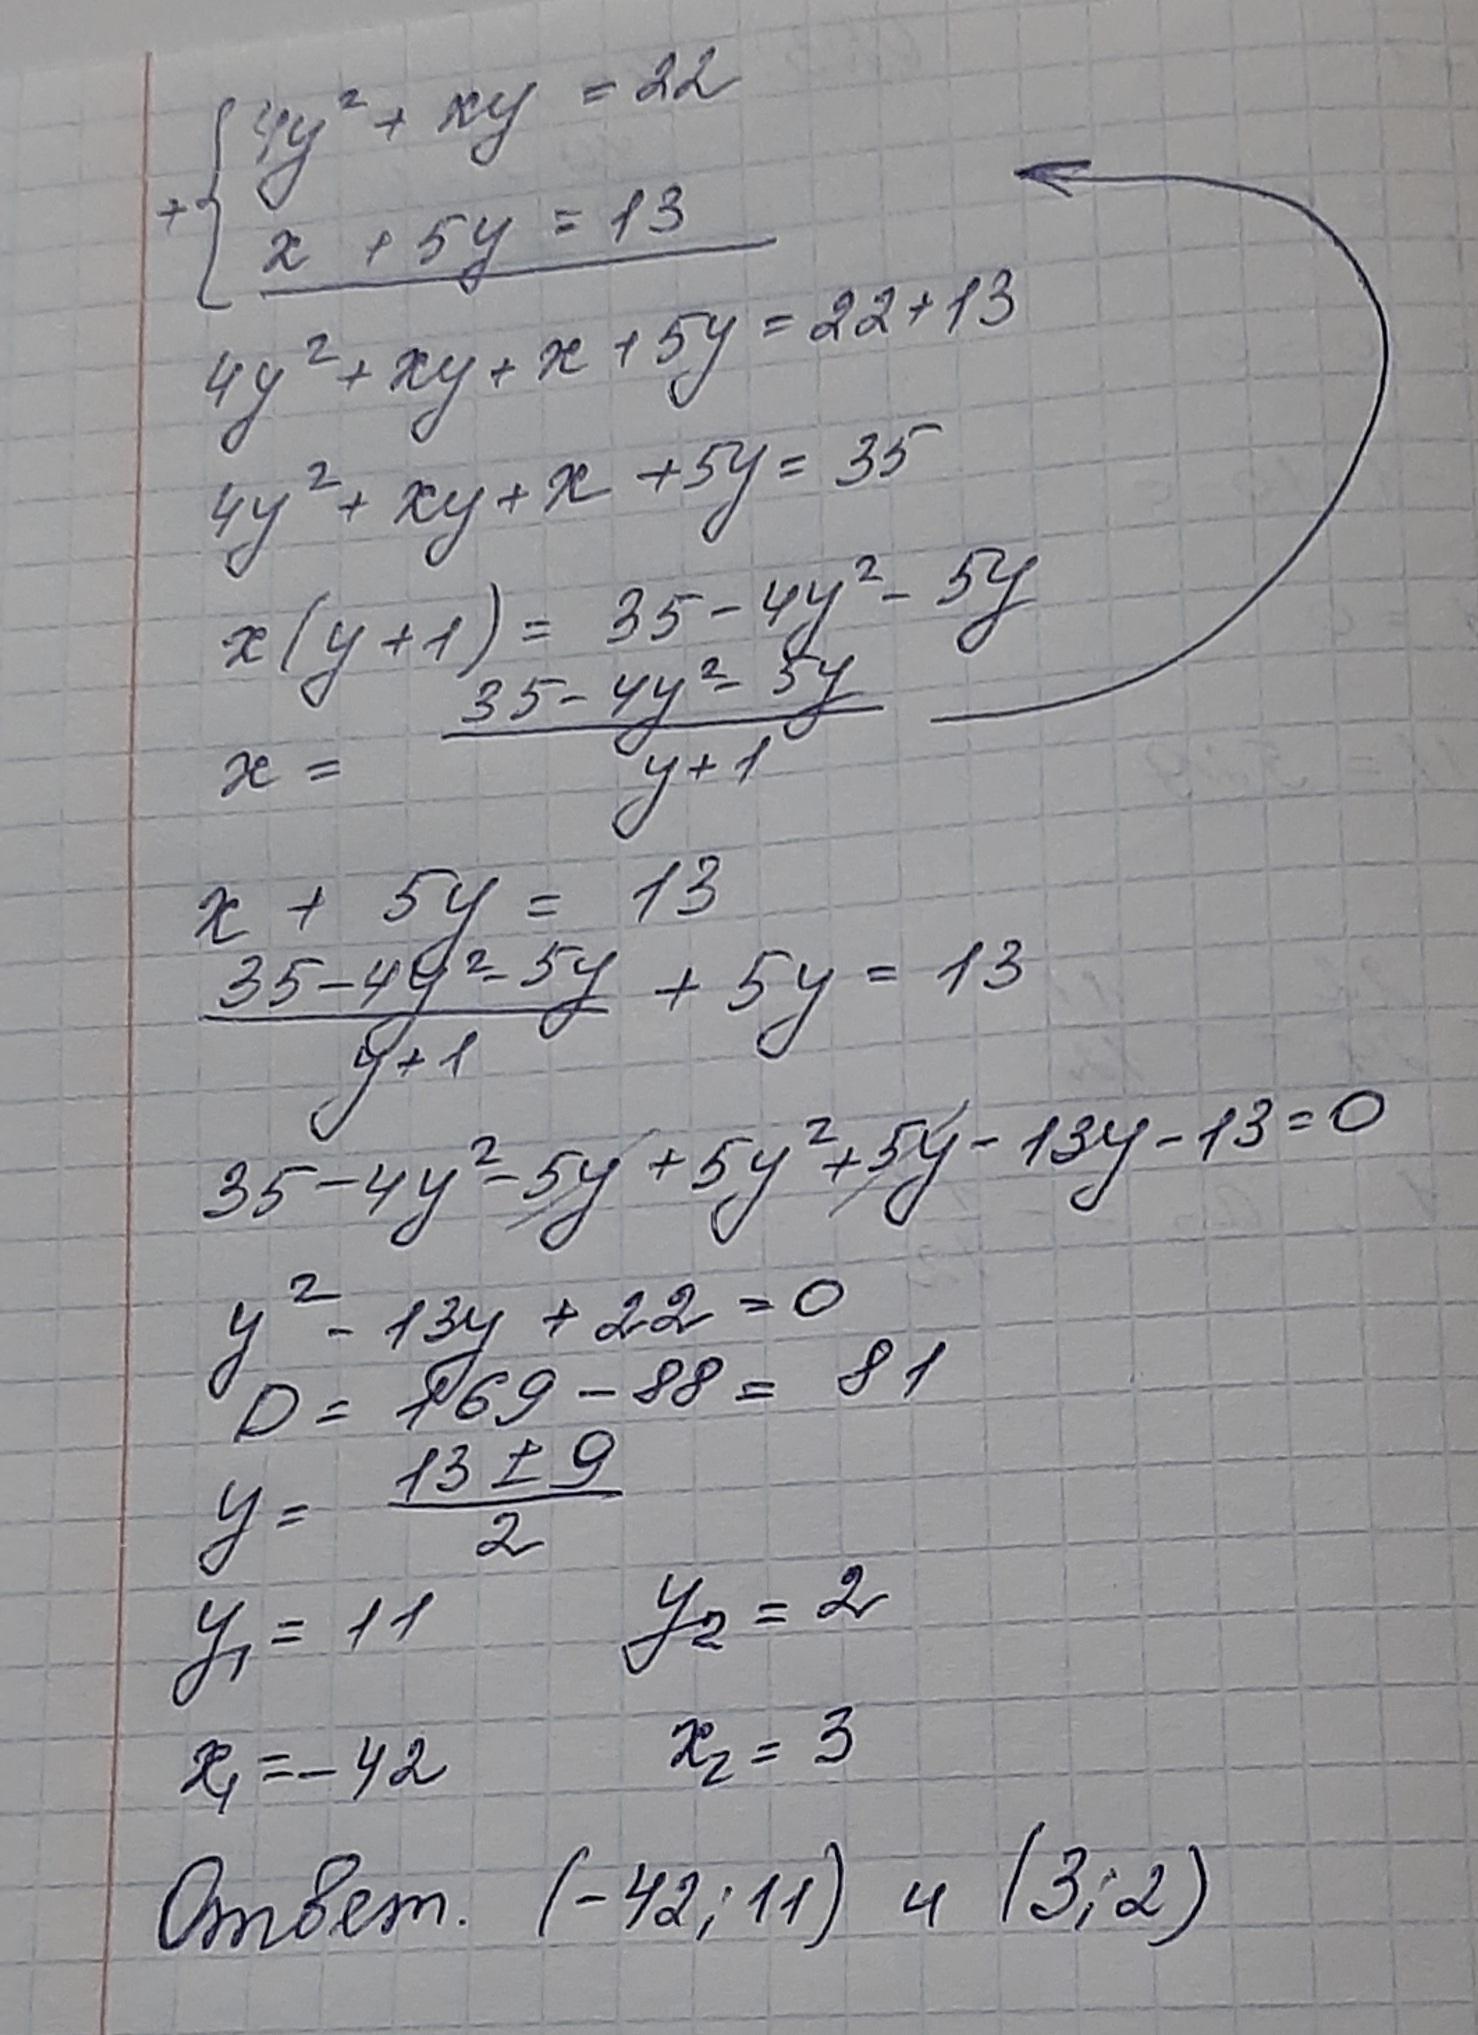 4y² + xy = 22
+
x + 5y = 13
4y² + xy + x + 5y = 22 + 13
4y² + xy + x + 5y = 35
x(y+1) = 35 - 4y² - 5y
x = (35 - 4y² - 5y)/(y+1)
x + 5y = 13
(35 - 4y² - 5y)/(y+1) + 5y = 13
35 - 4y² - 5y + 5y² + 5y - 13y - 13 = 0
y² - 13y + 22 = 0
D = 169 - 88 = 81
y = (13 ± 9)/2
y₁ = 11 y₂ = 2
x₁ = -42 x₂ = 3
Ответ. (-42; 11) и (3; 2)